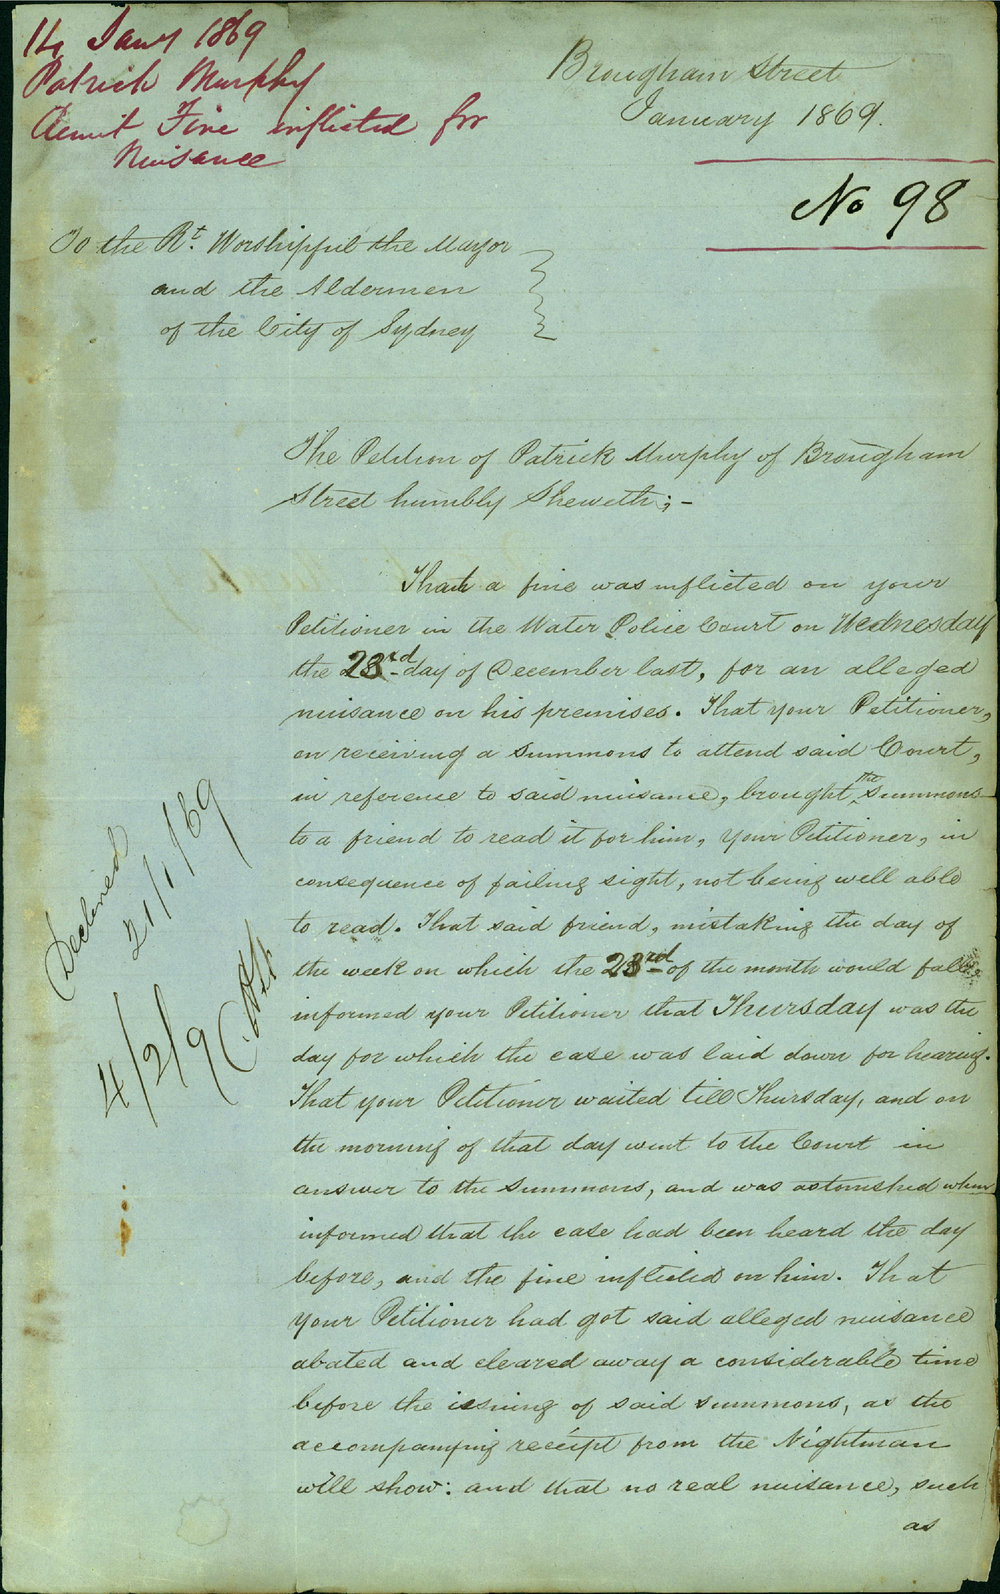 14 Jany 1869
Patrick Murphy
Remit Fine inflicted for
Nuisance
Brougham Street
January 1869.
No 98
To the Rt. Worshipful the Mayor
and the Aldermen
of the City of Sydney
The Petition of Patrick Murphy of Brougham
Street humbly Sheweth; –
That a fine was inflicted on your
Petitioner in the Water Police Court on Wednesday
the 23rd day of December last, for an alleged
nuisance on his premises. That your Petitioner,
on receiving a summons to attend said Court,
in reference to said nuisance, brought the summons
to a friend to read it for him, your Petitioner, in
consequence of failing sight, not being well able
to read. That said friend, mistaking the day of
the week on which the 23rd of the month would fall
informed your Petitioner that Thursday was the
day for which the case was laid down for hearing.
That your Petitioner waited till Thursday, and on
the morning of that day went to the Court in
answer to the summons, and was astonished when
informed that the case had been heard the day
before, and the fine inflicted on him. That
your Petitioner had got said alleged nuisance
abated and cleared away a considerable time
before the issuing of said summons, as the
accompanying receipt from the Nightman
will show: and that no real nuisance, such
as
Declined
21/1/69
4/2/9